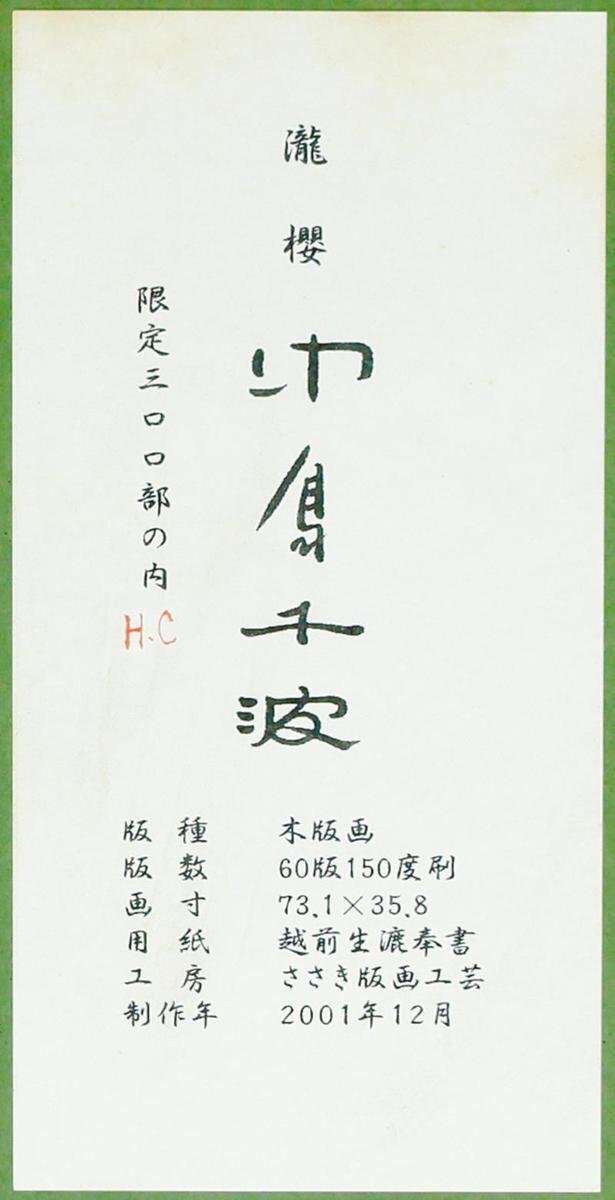 瀧櫻
中島千波
限定三〇〇部の内 H.C
版種 木版画
版数 60版150度刷
画寸 73.1×35.8
用紙 越前生漉奉書
工房 ささき版画工芸
制作年 2001年12月